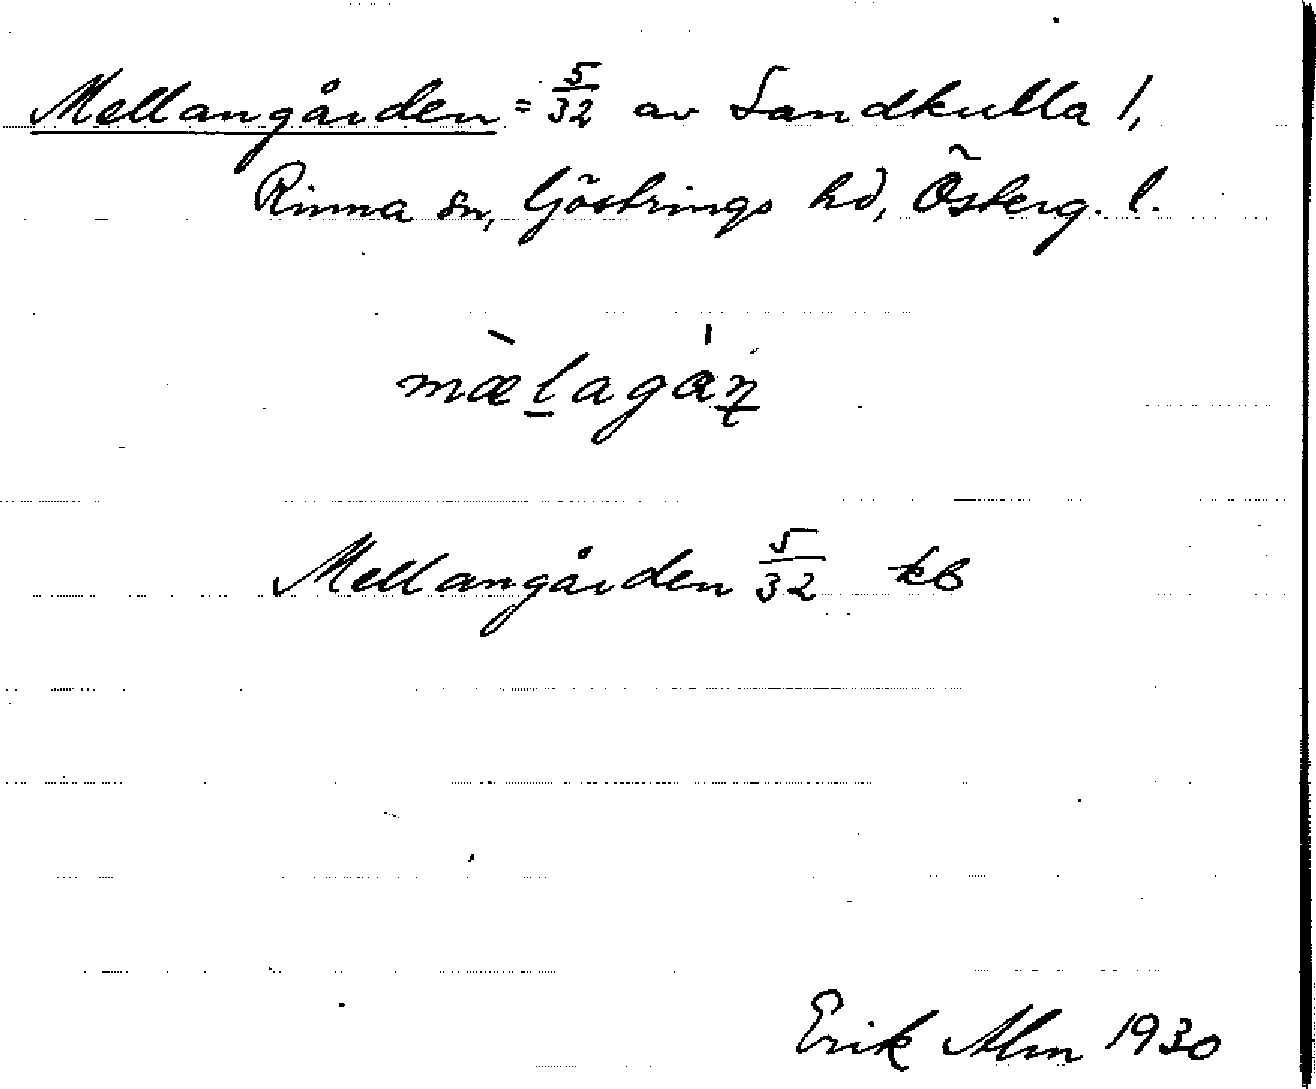 Mellangården = 5/32 av Sandkulla 1,
Rinna sn, Göstrings hd, Österg. l.
mæ̀l̲agȧ́n̲
Mellangården 5/32 kb
Erik Alm 1930